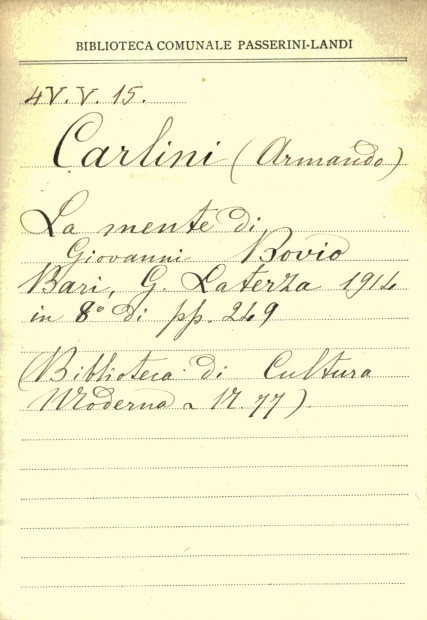 BIBLIOTECA COMUNALE PASSERINI-LANDI
4V.V.15.
Carlini (Armando)
La mente di
Giovanni Bovio
Bari, G. Laterza 1914
in 8º di pp. 249
(Biblioteca di Cultura
Moderna N. 77).